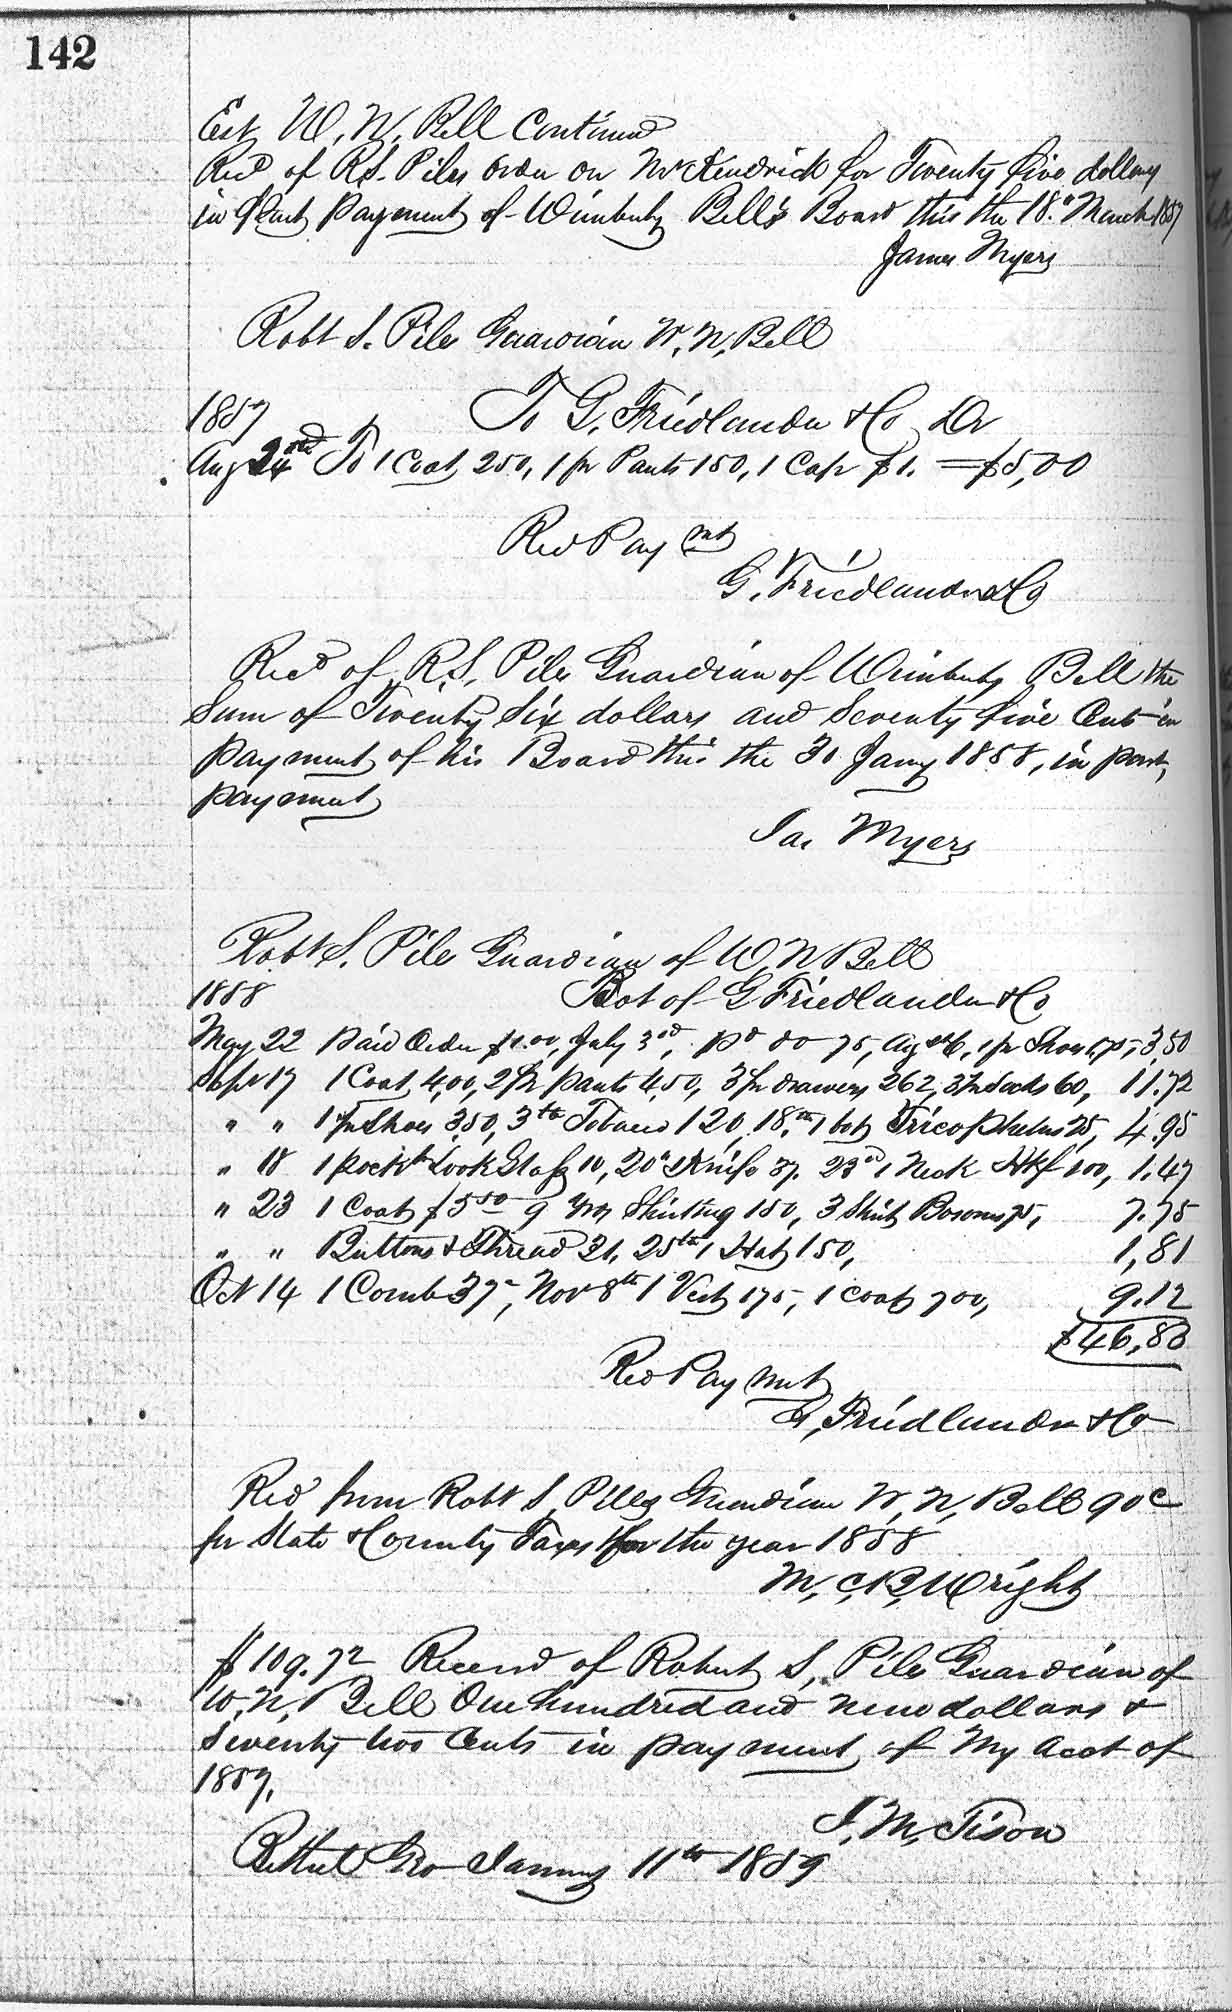 142
Est W. N. Bell Continued
Recd of R.S. Piles order on McKendrick for Twenty five dollars
in Part Payment of Wimberly Bell's Board this the 18th March 1857
James Myers
Robt S. Pile Guardian W. N. Bell
1857 To G. Friedlander & Co Dr
Aug 24th To 1 Coat 250, 1 pr Pants 150, 1 Cap $1. = $5,00
Recd Payment
G. Friedlander & Co
Recd of R.S. Pile Guardian of Wimberly Bell the
Sum of Twenty Six dollars and Seventy five Cents in
payment of his Board this the 30 Jany 1858, in part
payment
Jas Myers
Robt S. Pile Guardian of W. N Bell
1858 Bot of G Friedlander & Co
May 22 Paid Order $1.00, July 3rd, pd do 75, Aug 6, 1 pr Shoes 175, 3,50
Sept 17 1 Coat 4,00, 2 pr pants 4,50, 3 pr drawers 262, 3 pr Socks 60, 11.72
" " 1 pr Shoes 3,50, 3 lb Tobacco 120, 18th 1 bot Tricopherus 25, 4.95
" 18 1 pockt Look Glass 10, 20th 1 Knife 37. 23rd 1 Neck Hkf 100, 1.47
" 23 1 Coat $5 50 9 yds Shirting 150, 3 Shirt Bosoms 75, 7.75
" " Buttons & Thread 31, 25th 1 Hat 150, 1,81
Oct 14 1 Comb 37, Nov 8th 1 Vest 175, 1 Coat 700, 9.12
$46,88
Recd Payment
G, Friedlander & Co
Recd from Robt S Piles Guardian W, N, Bell 90c
for State & County Taxes for the year 1858
M, C, B, Wright
$109.72 Receved of Robert S, Pile Guardian of
W, N, Bell One hundred and nine dollars &
Seventy two Cents in payment of My acct of
1859,
J, M, Tison
Bethel Geo January 11th 1859